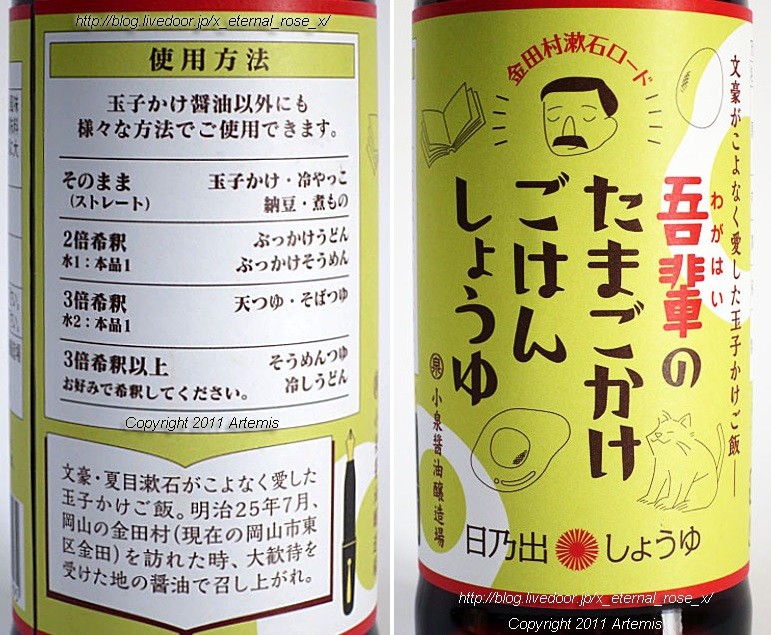 http://blog.livedoor.jp/x_eternal_rose_x/
使用方法
玉子かけ醤油以外にも
様々な方法でご使用できます。
そのまま
(ストレート)
玉子かけ・冷やっこ
納豆・煮もの
2倍希釈
水1:本品1
ぶっかけうどん
ぶっかけそうめん
3倍希釈
水2:本品1
天つゆ・そばつゆ
3倍希釈以上
お好みで希釈してください。
そうめんつゆ
冷しうどん
Copyright 2011 Artemis
文豪・夏目漱石がこよなく愛した
玉子かけご飯。明治25年7月、
岡山の金田村(現在の岡山市東
区金田)を訪れた時、大歓待を
受けた地の醤油で召し上がれ。
金田村漱石ロード
文豪がこよなく愛した玉子かけご飯―
わがはい
吾輩の
たまごかけ
ごはん
しょうゆ
㊝小泉醤油醸造場
日乃出しょうゆ
http://blog.livedoor.jp/x_eternal_rose_x/
Copyright 2011 Artemis